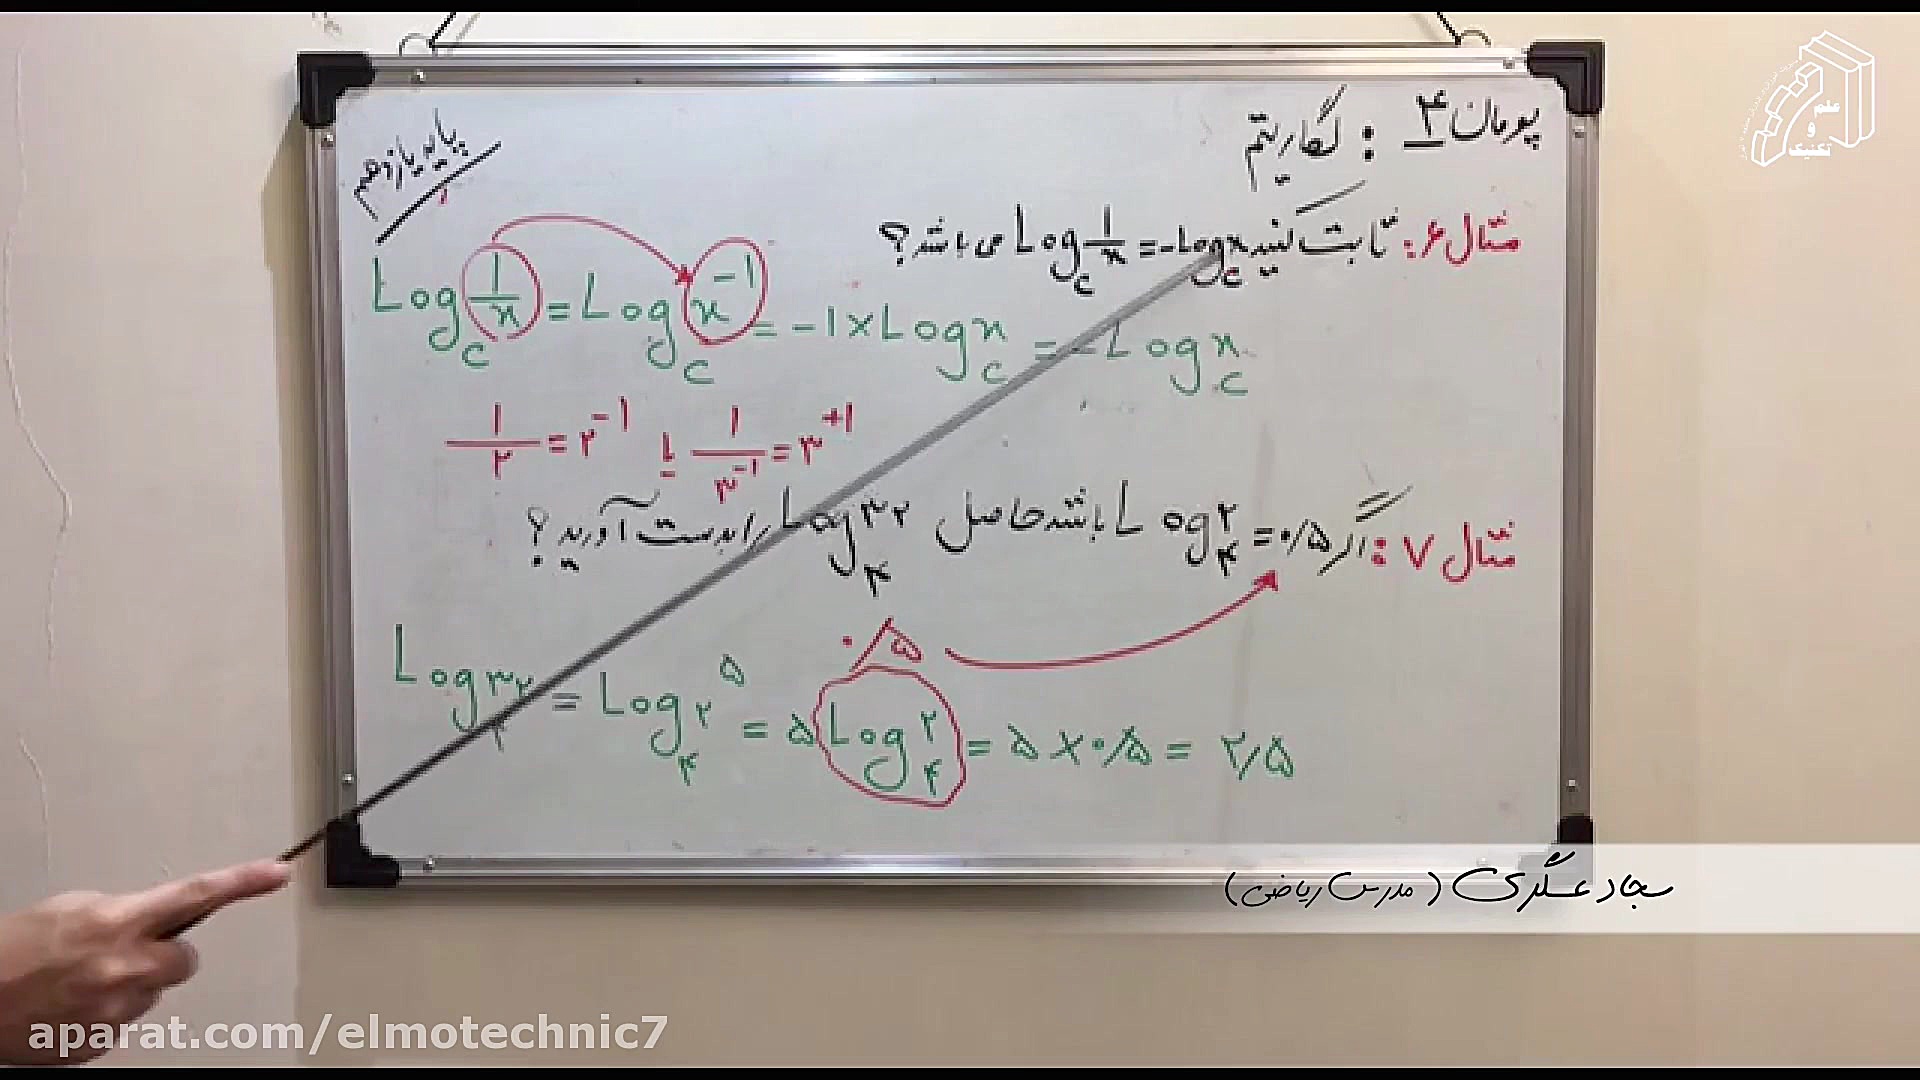 پودمان ۴ : لگاریتم
پایه یازدهم
مثال ۶: ثابت کنید Log_c 1/x = -Log_c x می باشد؟
Log_c 1/x = Log_c x^-1 = -1 × Log_c x = -Log_c x
1/۲ = ۲^-1 یا 1/۳^-1 = ۳^+1
مثال ۷: اگر Log_۴ ۲ = ۰/۵ باشد حاصل Log_۴ ۳۲ را بدست آورید؟
۰/۵
Log_۴ ۳۲ = Log_۴ ۲^۵ = ۵ Log_۴ ۲ = ۵ × ۰/۵ = ۲/۵
سجاد عسگری (مدرس ریاضی)
علم
و
تکنیک
aparat.com/elmotechnic7